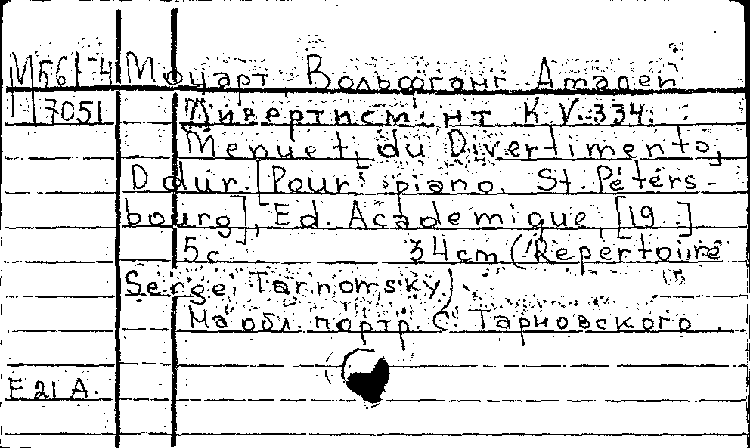 М561-4 Моцарт, Вольфганг Амадей
7051 Дивертисмент K.V.334.
Menuet du Divertimento,
D dur. [Pour piano. St. Péters-
bourg], Ed. Academique, [19 ]
5с 34cm (Repertoire
Serge Tarnowsky)
На обл. портр. С. Тарновского.
E 21 A.